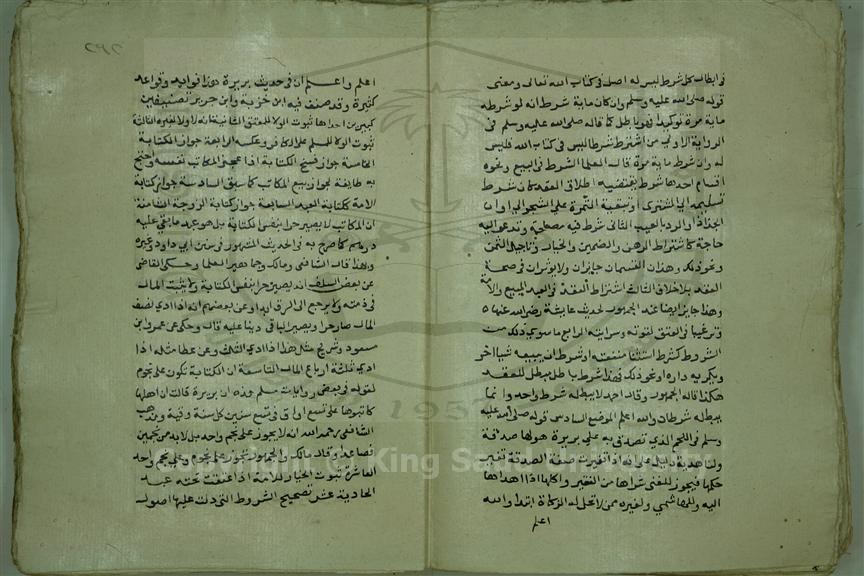 في ابطال كل شرط ليس له اصل في كتاب الله تعالى ومعنى
قوله صلى الله عليه وسلم وان كان ماية شرط انه لو شرطه
ماية مرة توكيدا فهو باطل كما قاله صلى الله عليه وسلم في
الرواية الاولى من اشترط شرطا ليس في كتاب الله فليس
له وان شرط ماية مرة قال العلما الشرط في البيع ونحوه
اقسام احدها شرط يقتضيه اطلاق العقد كان شرط
تسليمه الى المشتري او تبقية الثمرة على الشجر الى اوان
الجذاذ او الرد بالعيب الثاني شرط فيه مصلحة وتدعو اليه
حاجة كاشتراط الرهن والضمين والخيار وتاجيل الثمن
ونحو ذلك وهذان القسمان جايزان ولا يوثران في صحة
العقد بلا خلاف الثالث اشتراط العتق في العبد المبيع والامة
وهذا جايز ايضا عند الجمهور لحديث عايشة رضي الله عنها
وترغيبا في العتق لقوته وسرايته الرابع ما سوى ذلك من
الشروط كشرط استثنا منفعته او شرط ان يبيعه شيا اخر
ويكريه داره او نحو ذلك فهذا شرط باطل مبطل للعقد
هكذا قاله الجمهور وقال احمد لا يبطله شرط واحد وانما
يبطله شرطان والله اعلم الموضع السادس قوله صلى الله عليه
وسلم في اللحم الذي تصدق به على بريرة هو لها صدقة
ولنا هدية دليل على انه اذا تغيرت صفة الصدقة تغير
حكمها فيجوز للغني شراها من الفقير واكلها اذا اهداها
اليه وللهاشمي ولغيره ممن لا تحل له الزكاة ابتدا والله
اعلم
اعلم واعلم ان في حديث بريرة هذا فوايد وقواعد
كثيرة وقد صنف فيه ابن خزيمة وابن جرير تصنيفين
كبيرين احداها ثبوت الولا للمعتق الثانية انه لا ولا لغيره الثالثة
ثبوت الولا للمسلم على الكافر وعكسه الرابعة جواز الكتابة
الخامسة جواز فسخ الكتابة اذا عجز المكاتب نفسه واحتج
به طايفة لجواز بيع المكاتب كما سبق السادسة جواز كتابة
الامة ككتابة العبد السابعة جواز كتابة الزوجة الثامنة
ان المكاتب لا يصير حرا بنفس الكتابة بل هو عبد ما بقي عليه
درهم كما صرح به في الحديث المشهور في سنن ابي داود وغيره
وبهذا قال الشافعي ومالك وجماهير العلما وحكى القاضي
عن بعض السلف انه يصير حرا بنفس الكتابة ويثبت المال
في ذمته ولا يرجع الى الرق ابدا وعن بعضهم انه اذا ادى نصف
المال صار حرا ويصير الباقي دينا عليه قال وحكي عن عمر وابن
مسعود وشريح مثل هذا اذا ادى الثلث وعن عطا مثله اذا
ادى ثلاثة ارباع المال التاسعة ان الكتابة تكون على نجوم
لقوله في بعض روايات مسلم هذه ان بريرة قالت ان اهلها
كاتبوها على تسع اواق في تسع سنين كل سنة وقية ومذهب
الشافعي رحمه الله انه لا يجوز على نجم واحد بل لا بد من نجمين
فصاعدا وقال مالك والجمهور تجوز على نجوم وعلى نجم واحد
العاشرة ثبوت الخيار للامة اذا عتقت تحت عبد
الحادية عشر تصحيح الشروط التي دلت عليها اصول
Copyright © King Saud University
1957